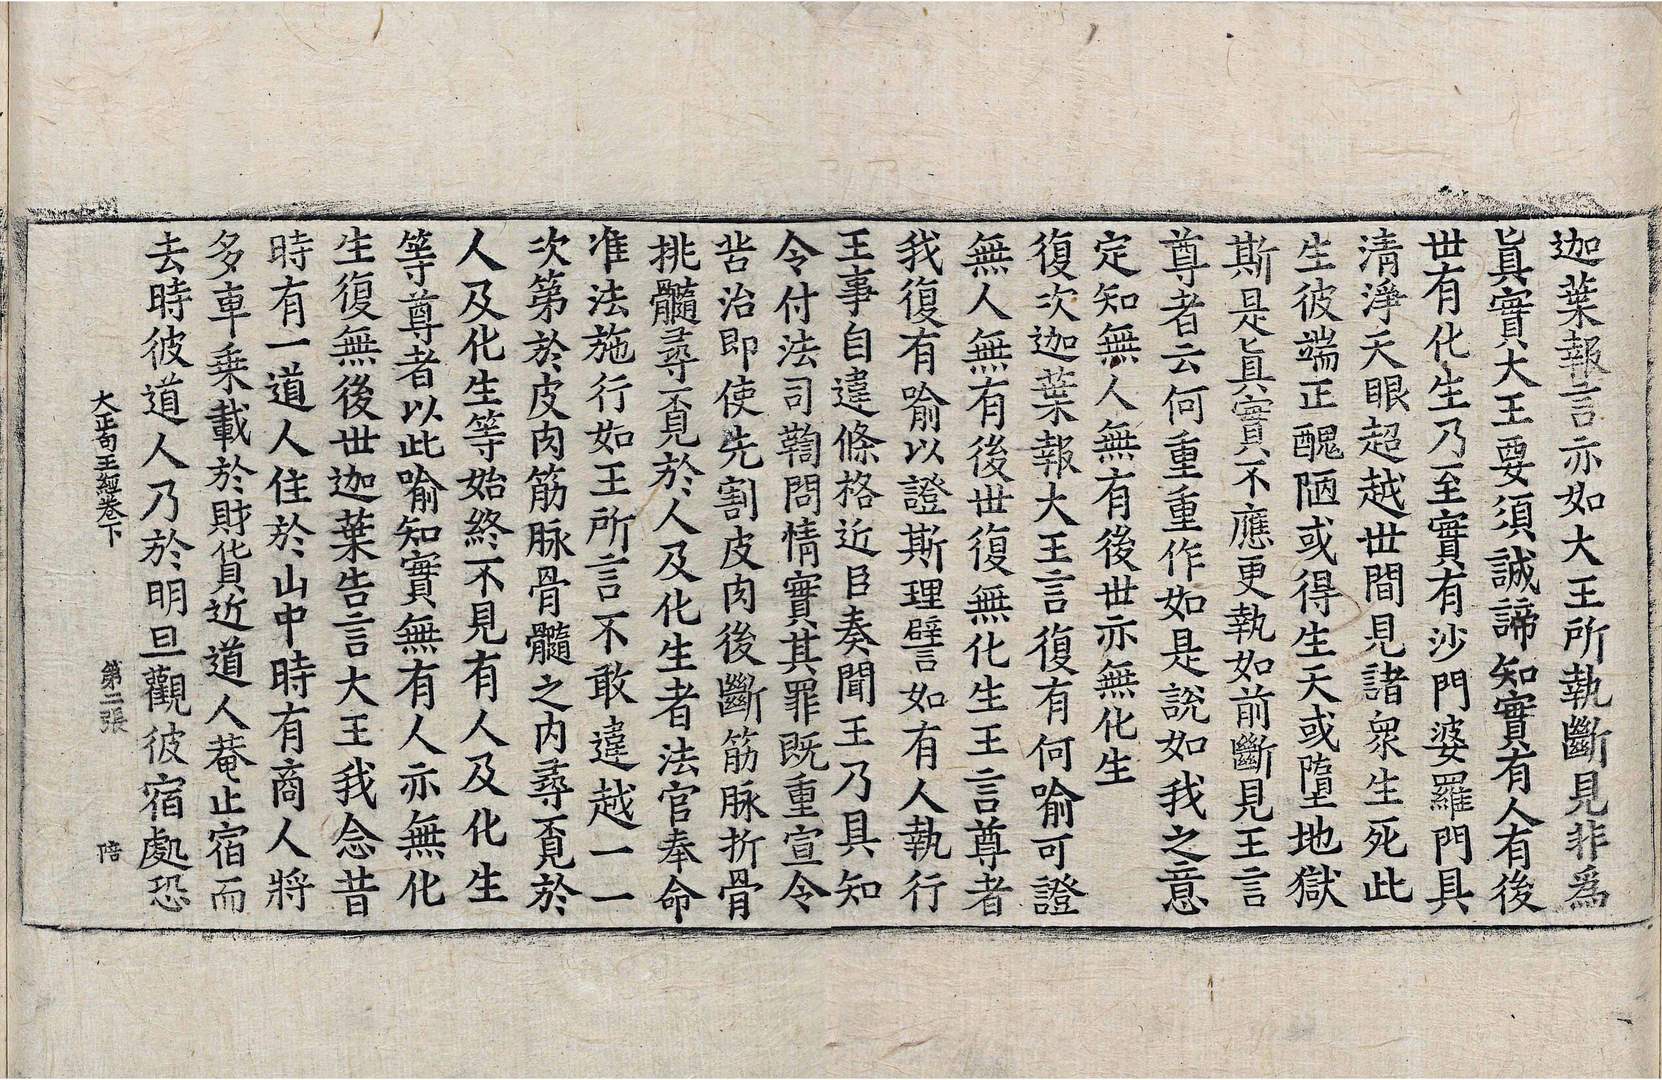 迦葉報言亦如大王所執斷見非爲
眞實大王要須誠諦知實有人有後
世有化生乃至實有沙門婆羅門具
清淨天眼超越世間見諸衆生死此
生彼端正醜陋或得生天或墮地獄
斯是眞實不應更執如前斷見王言
尊者云何重重作如是說如我之意
定知無人無有後世亦無化生
復次迦葉報大王言復有何喻可證
無人無有後世復無化生王言尊者
我復有喻以證斯理譬如有人執行
王事自違條格近臣奏聞王乃具知
令付法司鞫問情實其罪旣重宣令
苦治即使先割皮肉後斷筋脉折骨
挑髓尋覓於人及化生者法官奉命
准法施行如王所言不敢違越一一
次第於皮肉筋脉骨髓之内尋覓於
人及化生等始終不見有人及化生
等尊者以此喻知實無有人亦無化
生復無後世迦葉告言大王我念昔
時有一道人住於山中時有商人將
多車乗載於財貨近道人菴止宿而
去時彼道人乃於明旦觀彼宿處恐
大正句王經卷下 第二張 陪